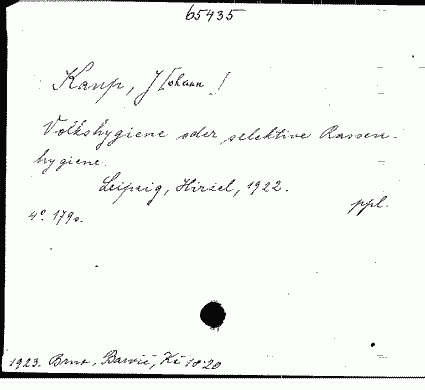 65435
Kaup, J[ohann]
Volkshygiene oder selektive Rassen-
hygiene.
Leipzig, Hirzel, 1922.
ppl.
4° 179 s.
1923. Brno, Barvič, Kč 10.20